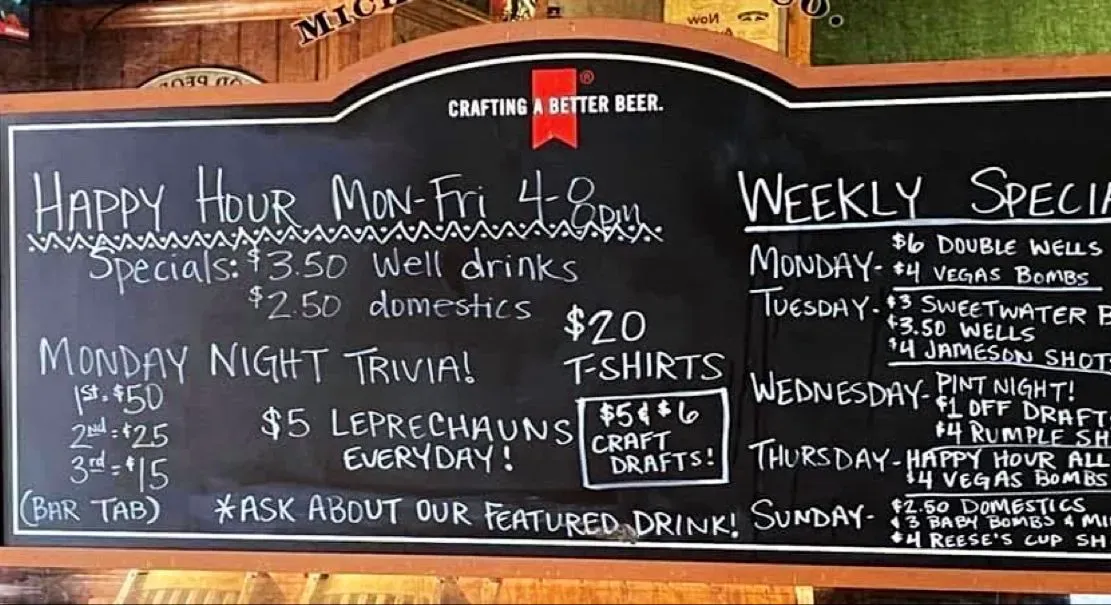 MICH
CO.
Now
CRAFTING A BETTER BEER.
HAPPY HOUR MON-Fri 4-8pm
Specials: $3.50 Well drinks
$2.50 domestics
$20
T-SHIRTS
MONDAY NIGHT TRIVIA!
1st = $50
2nd = $25
3rd = $15
(BAR TAB)
$5 LEPRECHAUNS
EVERYDAY!
$5 & $6
CRAFT
DRAFTS!
*ASK ABOUT OUR FEATURED DRINK!
WEEKLY SPECIA
MONDAY- $6 DOUBLE WELLS
$4 VEGAS BOMBS
TUESDAY- $3 SWEETWATER B
$3.50 WELLS
$4 JAMESON SHOTS
WEDNESDAY- PINT NIGHT!
$1 OFF DRAFT
$4 RUMPLE SH
THURSDAY- HAPPY HOUR ALL
$4 VEGAS BOMBS
SUNDAY- $2.50 DOMESTICS
$3 BABY BOMBS & MI
$4 REESE'S CUP SH